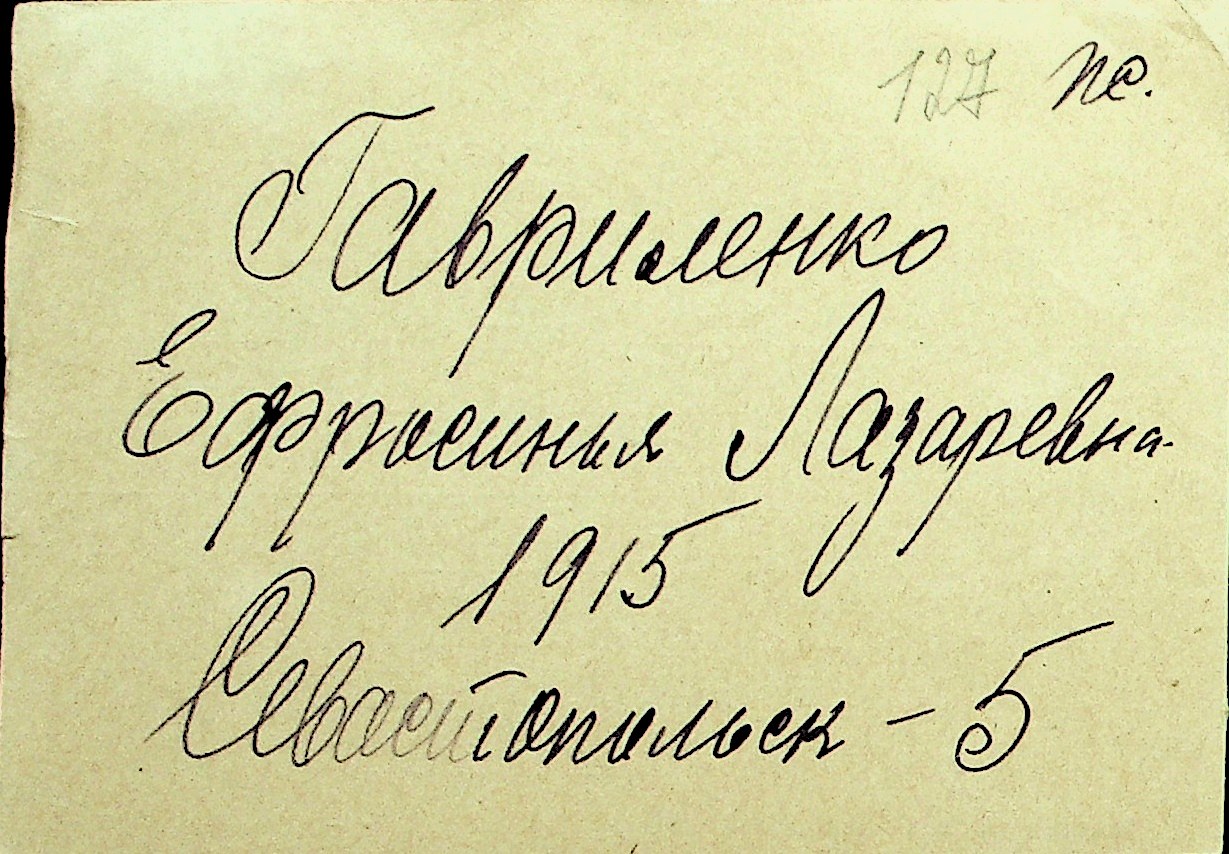 127 пс.
Гавриленко
Ефросинья Лазаревна
1915
Севастопольск - 5